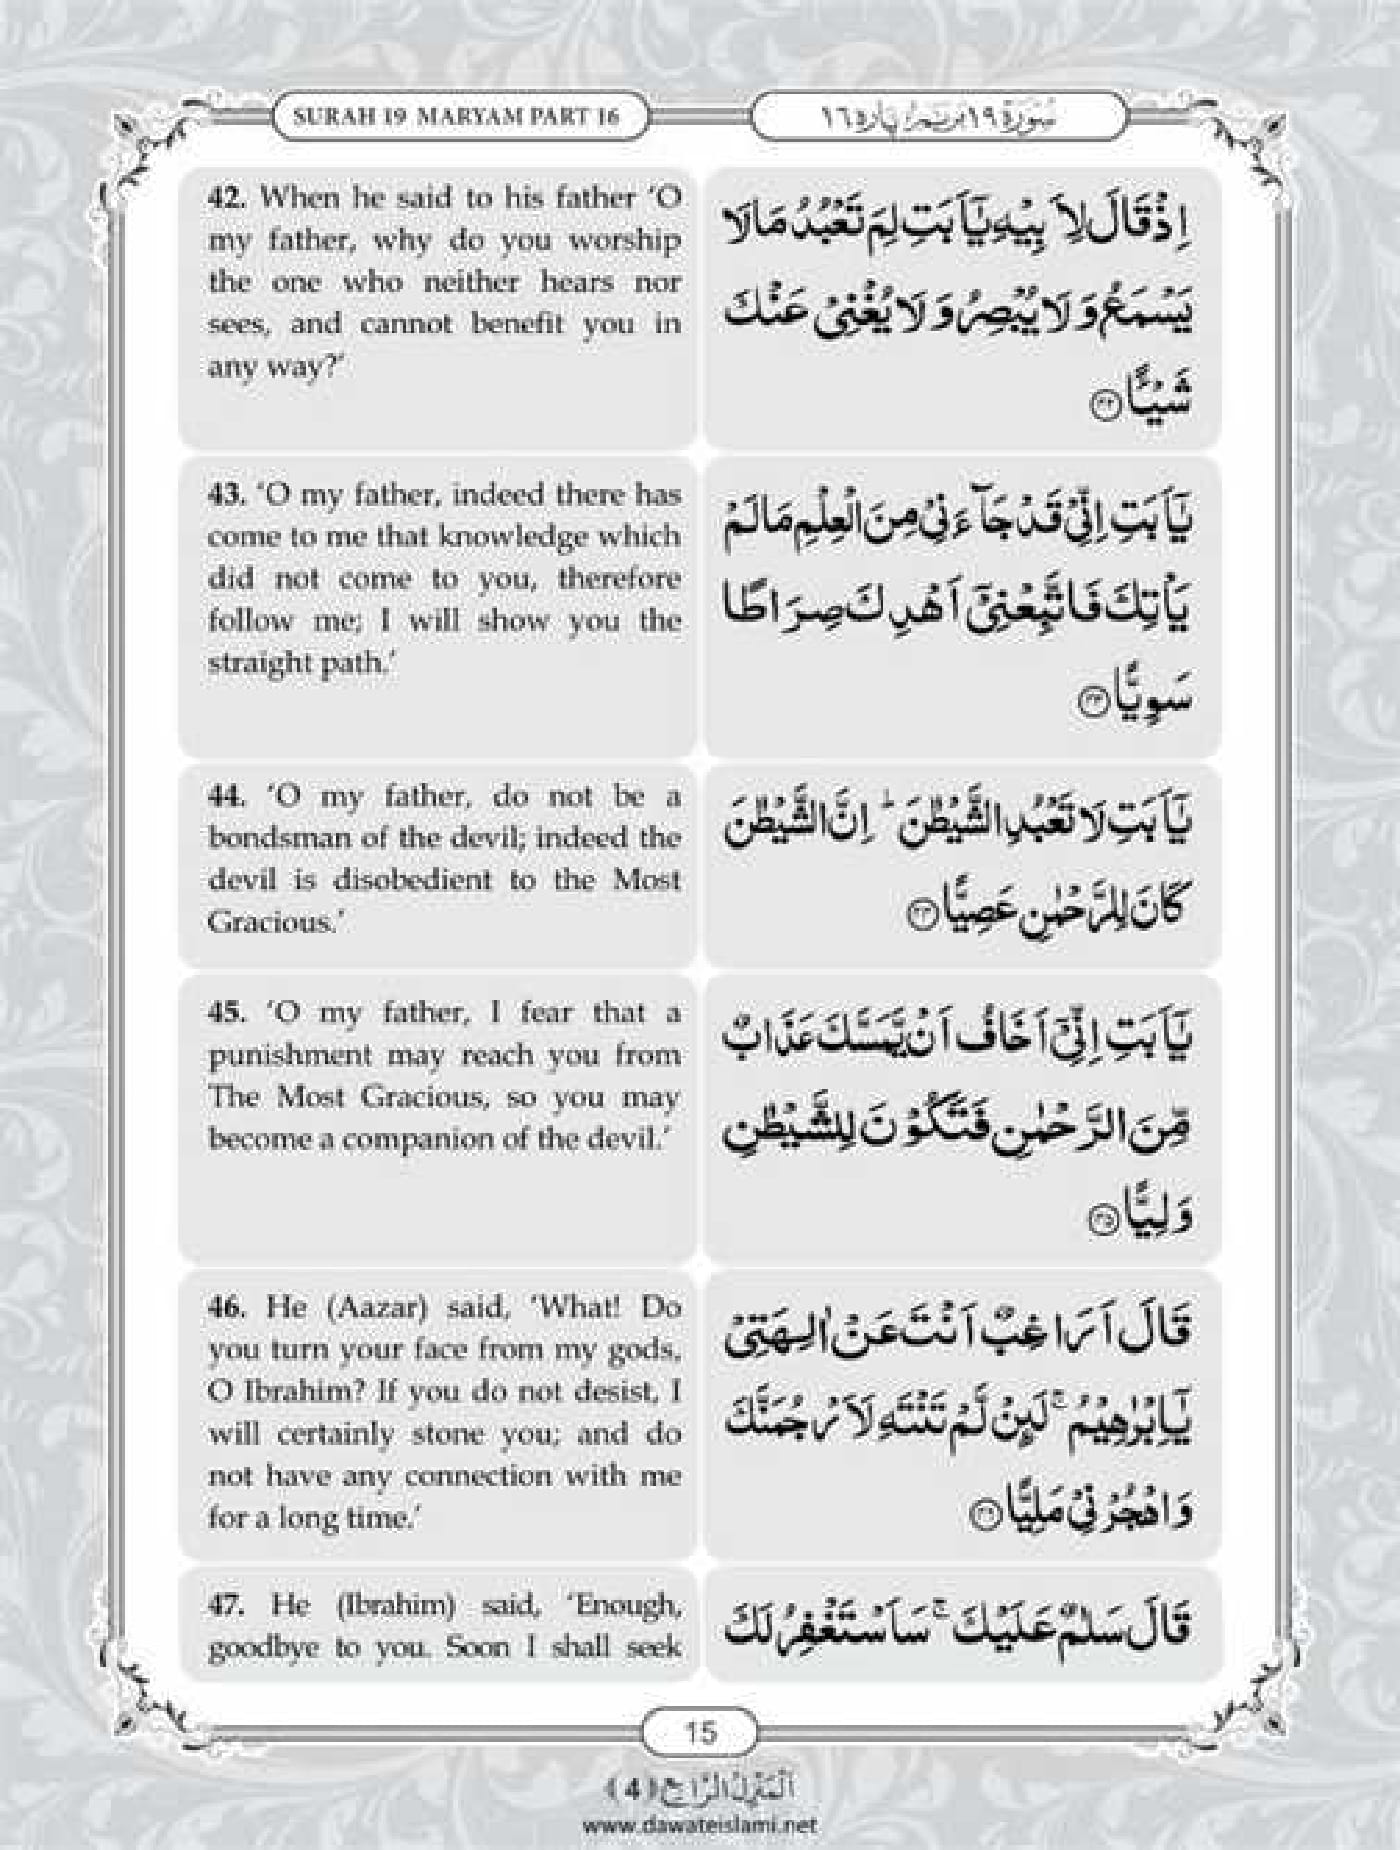 SURAH 19 MARYAM PART 16
سُورَة ١٩ مَرْيَم پاره ١٦
42. When he said to his father ‘O
my father, why do you worship
the one who neither hears nor
sees, and cannot benefit you in
any way?’
اِذْ قَالَ لِاَ بِیْهِ یٰۤاَ بَتِ لِمَ تَعْبُدُ مَا لَا
یَسْمَعُ وَ لَا یُبْصِرُ وَ لَا یُغْنِیْ عَنْكَ
شَیْــٴًـا ﴿۴۲﴾
43. ‘O my father, indeed there has
come to me that knowledge which
did not come to you, therefore
follow me; I will show you the
straight path.’
یٰۤاَ بَتِ اِنِّیْ قَدْ جَآءَنِیْ مِنَ الْعِلْمِ مَا لَمْ
یَاْتِكَ فَاتَّبِعْنِیْۤ اَهْدِكَ صِرَاطًا
سَوِیًّا ﴿۴۳﴾
44. ‘O my father, do not be a
bondsman of the devil; indeed the
devil is disobedient to the Most
Gracious.’
یٰۤاَ بَتِ لَا تَعْبُدِ الشَّیْطٰنَ ؕ اِنَّ الشَّیْطٰنَ
كَانَ لِلرَّحْمٰنِ عَصِیًّا ﴿۴۴﴾
45. ‘O my father, I fear that a
punishment may reach you from
The Most Gracious, so you may
become a companion of the devil.’
یٰۤاَ بَتِ اِنِّیْۤ اَخَافُ اَنْ یَّمَسَّكَ عَذَابٌ
مِّنَ الرَّحْمٰنِ فَتَكُوْنَ لِلشَّیْطٰنِ
وَلِیًّا ﴿۴۵﴾
46. He (Aazar) said, ‘What! Do
you turn your face from my gods,
O Ibrahim? If you do not desist, I
will certainly stone you; and do
not have any connection with me
for a long time.’
قَالَ اَرَاغِبٌ اَنْتَ عَنْ اٰلِهَتِیْ
یٰۤاِبْرٰهِیْمُ ۚ لَىِٕنْ لَّمْ تَنْتَهِ لَاَرْجُمَنَّكَ
وَ اهْجُرْنِیْ مَلِیًّا ﴿۴۶﴾
47. He (Ibrahim) said, ‘Enough,
goodbye to you. Soon I shall seek
قَالَ سَلٰمٌ عَلَیْكَ ۚ سَاَسْتَغْفِرُ لَكَ
15
اَلْمَنْزِلُ الرَّابِع ﴿4﴾
www.dawateislami.net